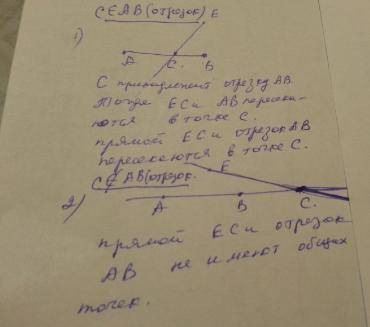 C∈AB (отрезок)
E
1)
A C. B
C принадлежит отрезку AB.
Тогда EC и AB пересека-
ются в точке C.
прямой EC и отрезок AB
пересекаются в точке C.
C∉AB (отрезок.
E
2)
A B C.
прямой EC и отрезок
AB не имеют общих
точек.